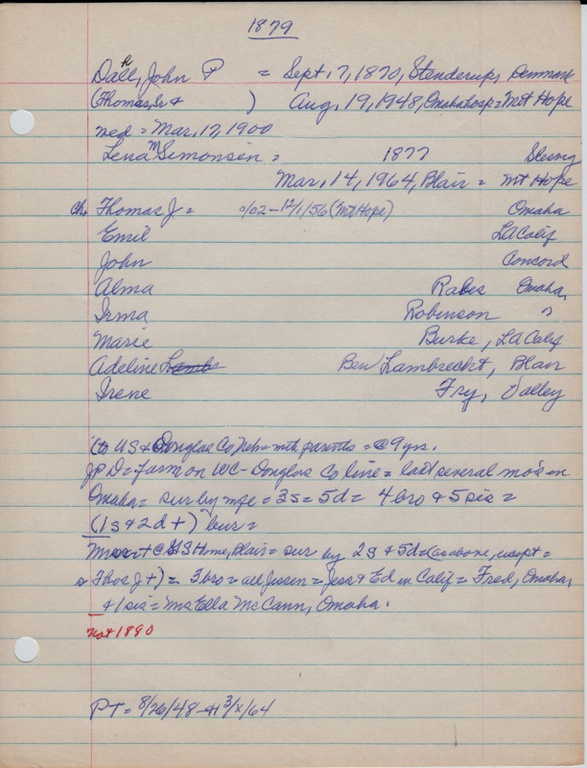 1879
Dall, John P = Sept. 7, 1870, Stenderup, Denmark
(Thomas, Sr & ) Aug, 19, 1948, Omaha hosp = Mt Hope
med = Mar, 17, 1900
Lena M Simonsen = 1877 Sleswig
Mar, 14, 1964, Blair = Mt Hope
Ch, Thomas J = 0/02 - 12/1/56 (Mt Hope) Omaha
Emil LA Calif
John Concord
Alma Rabes Omaha,
Irma Robinson "
Marie Burke, LA Calif
Adeline Ben Lambrecht, Blair
Irene Fry, Valley
(to US & Douglas Co Nebr = with parents = @ 9 yrs.
JPD = farm on WC - Douglas Co line = last several mos in
Omaha = sur by wife = 3s = 5d = 4 bro & 5 sis =
(1s & 2d +) bur =
@ GS Home, Blair = sur by 2s & 5d = (as above, except =
Thos J +) = 3 bro = all Jessen = Jess & Ed in Calif = Fred, Omaha,
& 1 sis = Mrs Ella McCann, Omaha.
not 1890
PT = 8/26/48 - 3/x/64